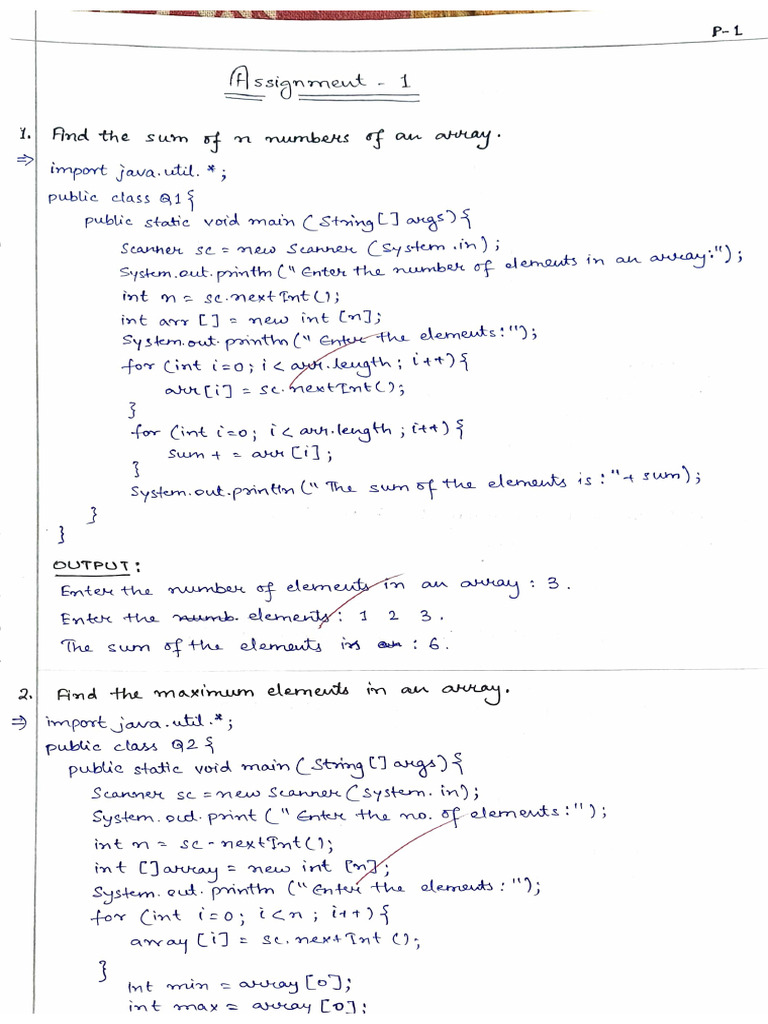 P-1
Assignment - 1
1. Find the sum of n numbers of an array.
⇒ import java.util.*;
public class Q1{
public static void main (String[] args){
Scanner sc = new Scanner (System.in);
System.out.println("Enter the number of elements in an array:");
int n = sc.nextInt();
int arr [] = new int [n];
System.out.println("Enter the elements:");
for (int i=0; i< arr.length; i++){
arr[i] = sc.nextInt();
}
for (int i=0; i< arr.length; i++){
sum + = arr [i];
}
System.out.println("The sum of the elements is :"+ sum);
}
}
OUTPUT:
Enter the number of elements in an array : 3.
Enter the numb. elements: 1 2 3.
The sum of the elements is : 6.
2. Find the maximum elements in an array.
⇒ import java.util.*;
public class Q2{
public static void main (String[] args){
Scanner sc = new Scanner(System.in);
System.out.print ("Enter the no. of elements:");
int n = sc-nextInt();
int []array = new int [n];
System.out.println ("Enter the elements:");
for (int i=0; i<n; i++){
array [i] = sc.nextInt ();
}
Int min = array[0];
int max = array [0];